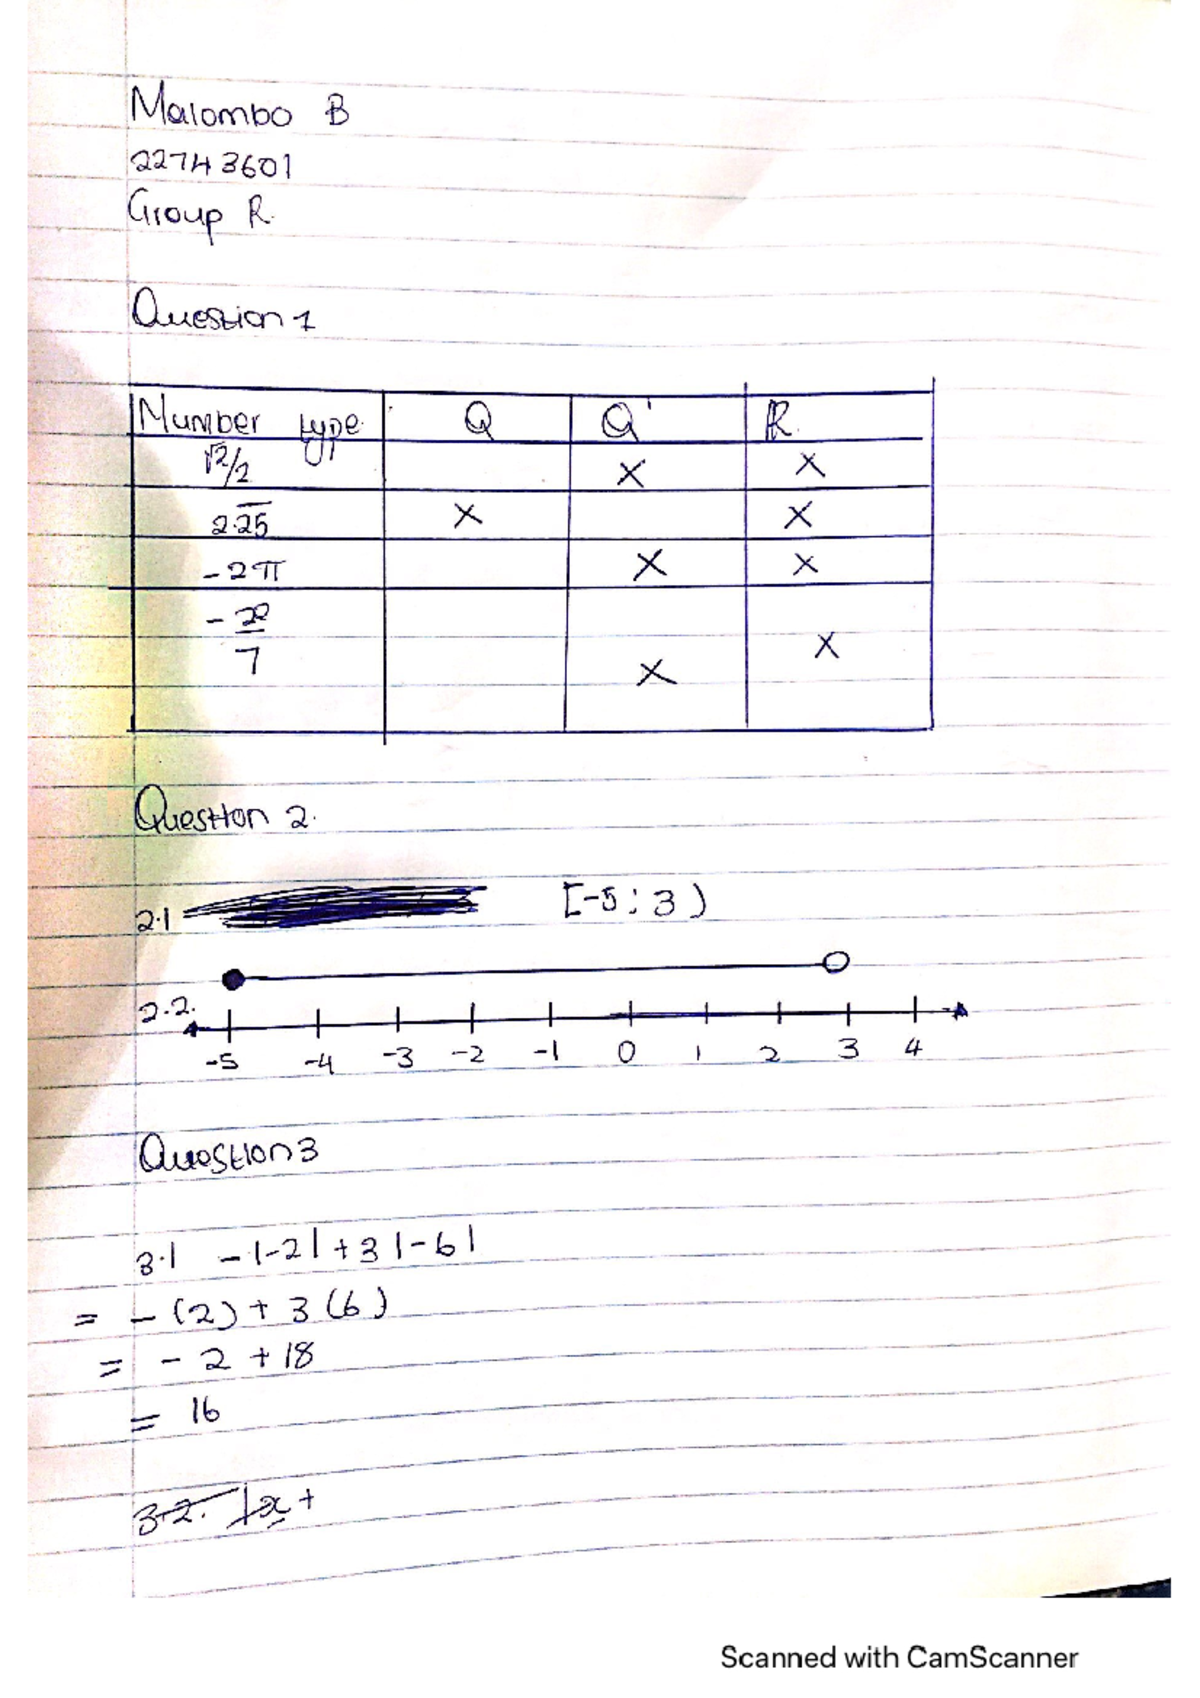 Malombo B
22743601
Group R.
Question 1
Number type Q Q' R
√2/2 X X
2.2̅5̅ X X
-2π X X
- 22
7 X X
Question 2.
2.1 [-5 ; 3 )
2.2.
-5 -4 -3 -2 -1 0 1 2 3 4
Question 3
3.1 -|-2| + 3 |-6|
= - (2) + 3 (6)
= - 2 + 18
= 16
3.2. |x +
Scanned with CamScanner